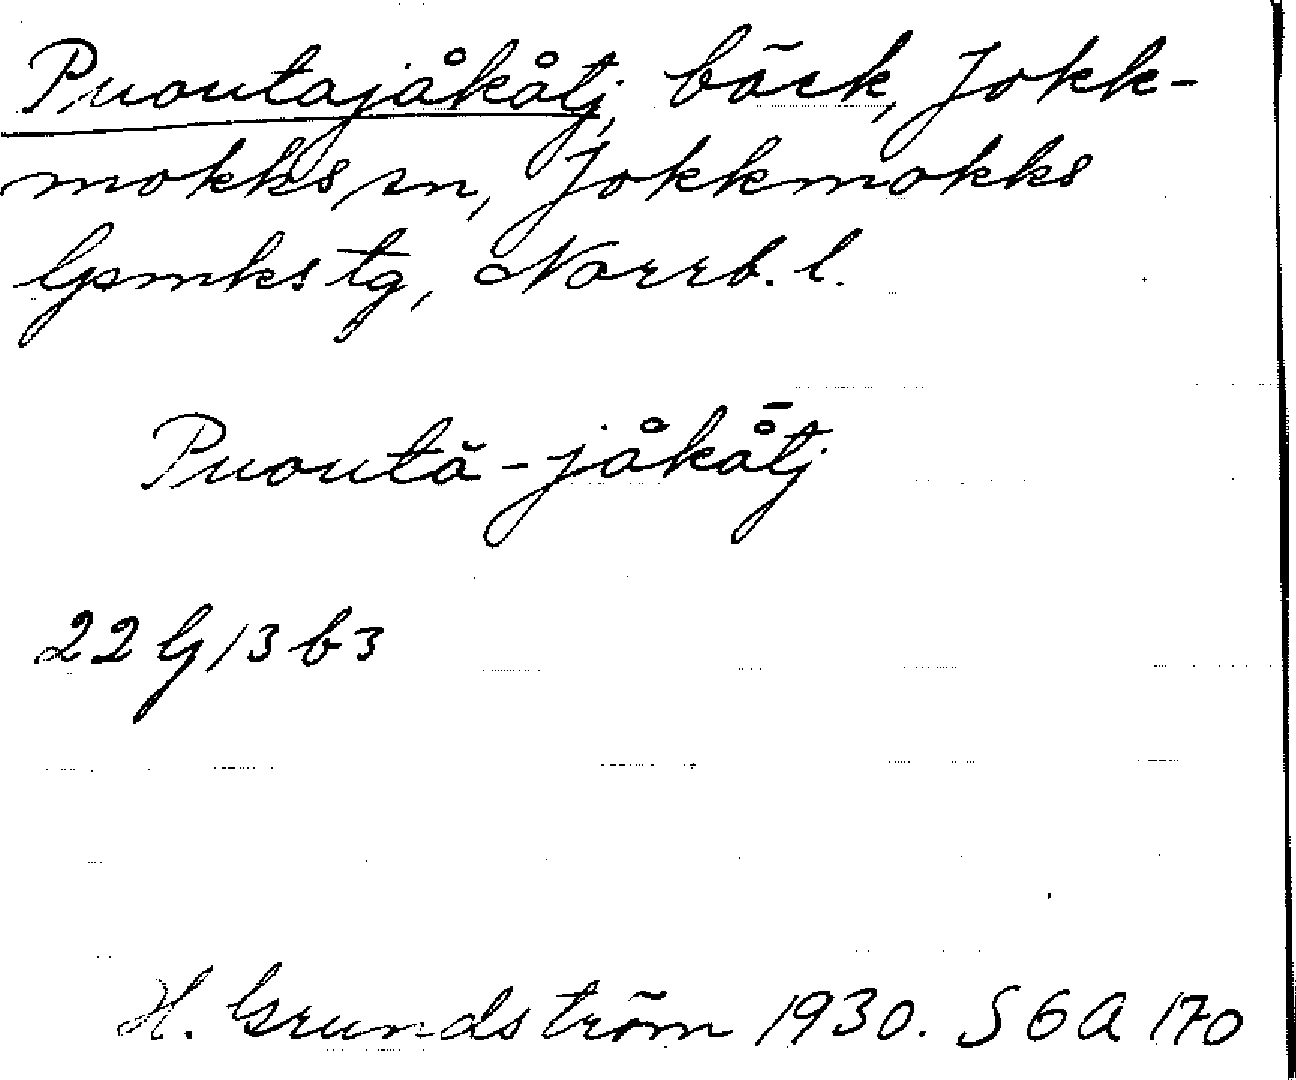 Puoutajåkåtj, bäck, Jokk-
mokks sn, Jokkmokks
lpmks tg, Norrb. l.
Puoută-jåkå̄tj
22 G/3 b 3
H. Grundström 1930. S 6 A 170